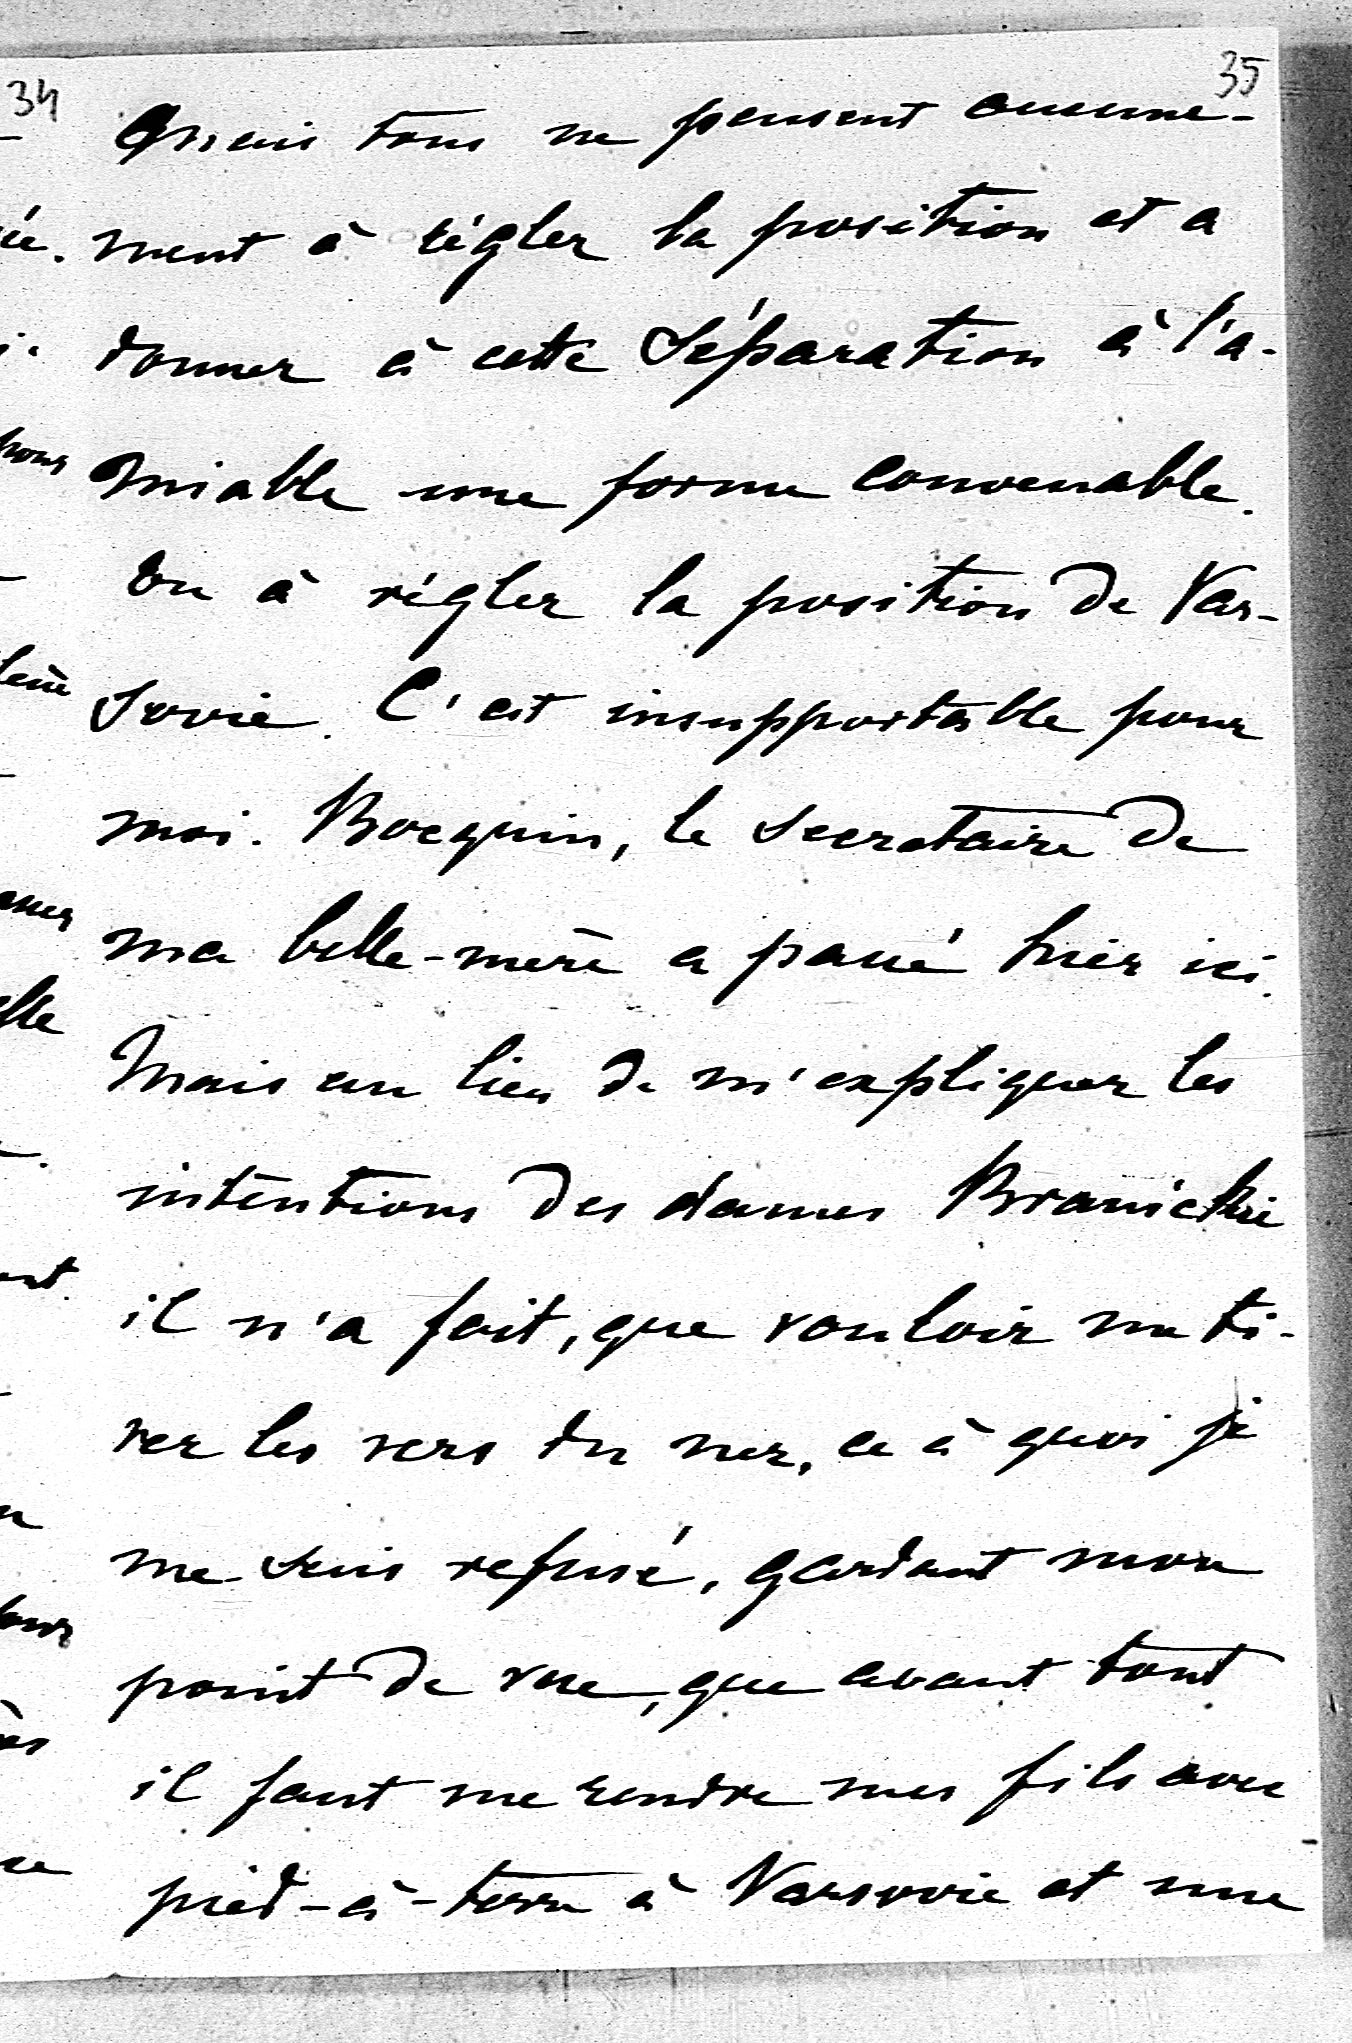 34
35
Mais tous ne pensent aucune-
ment à régler la position et a
donner à cette séparation à l'a-
miable une forme convenable.
ou à régler la position de Var-
sovie. C'est insupportable pour
moi. Bocquin, le secretaire de
ma belle-mère a passé hier ici.
Mais au lieu de m'expliquer les
intentions des dames Branicki
il n'a fait, que vouloir me ti-
rer les vers du nez, ce à quoi je
me suis refusé, gardant mon
point de vue, que avant tout
il faut me rendre mes fils avec
pied-à-terre à Varsovie et une